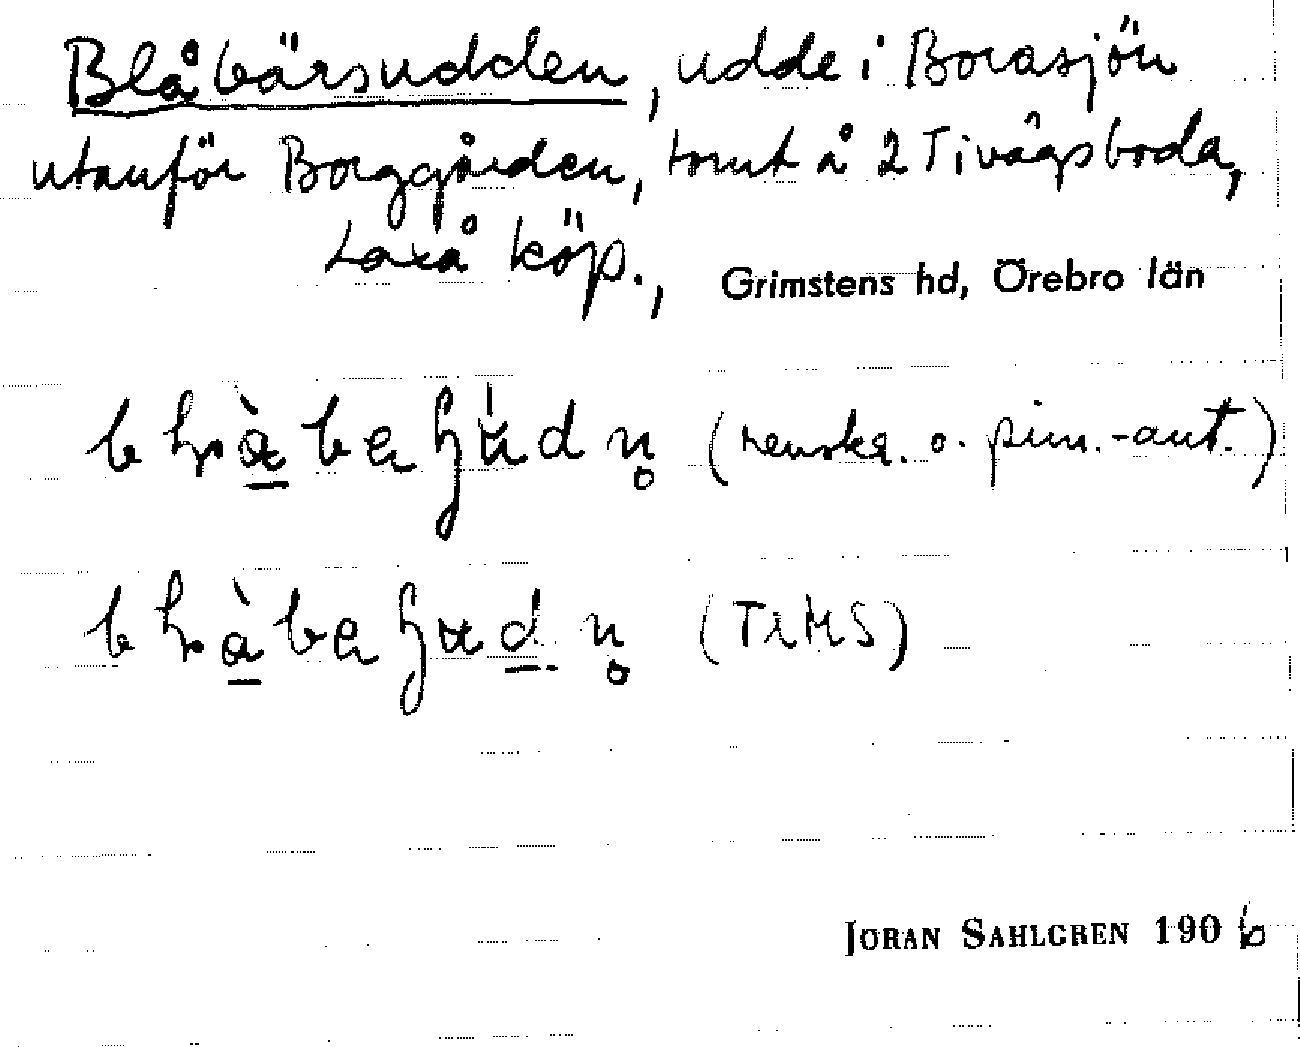 Blåbärsudden, udde i Borasjön
utanför Borggården, tomt å 2 Tivägsboda,
Laxå köp., Grimstens hd, Örebro län
(renskr. o. pim.-ant.)
(TiMS)
JÖRAN SAHLGREN 1906